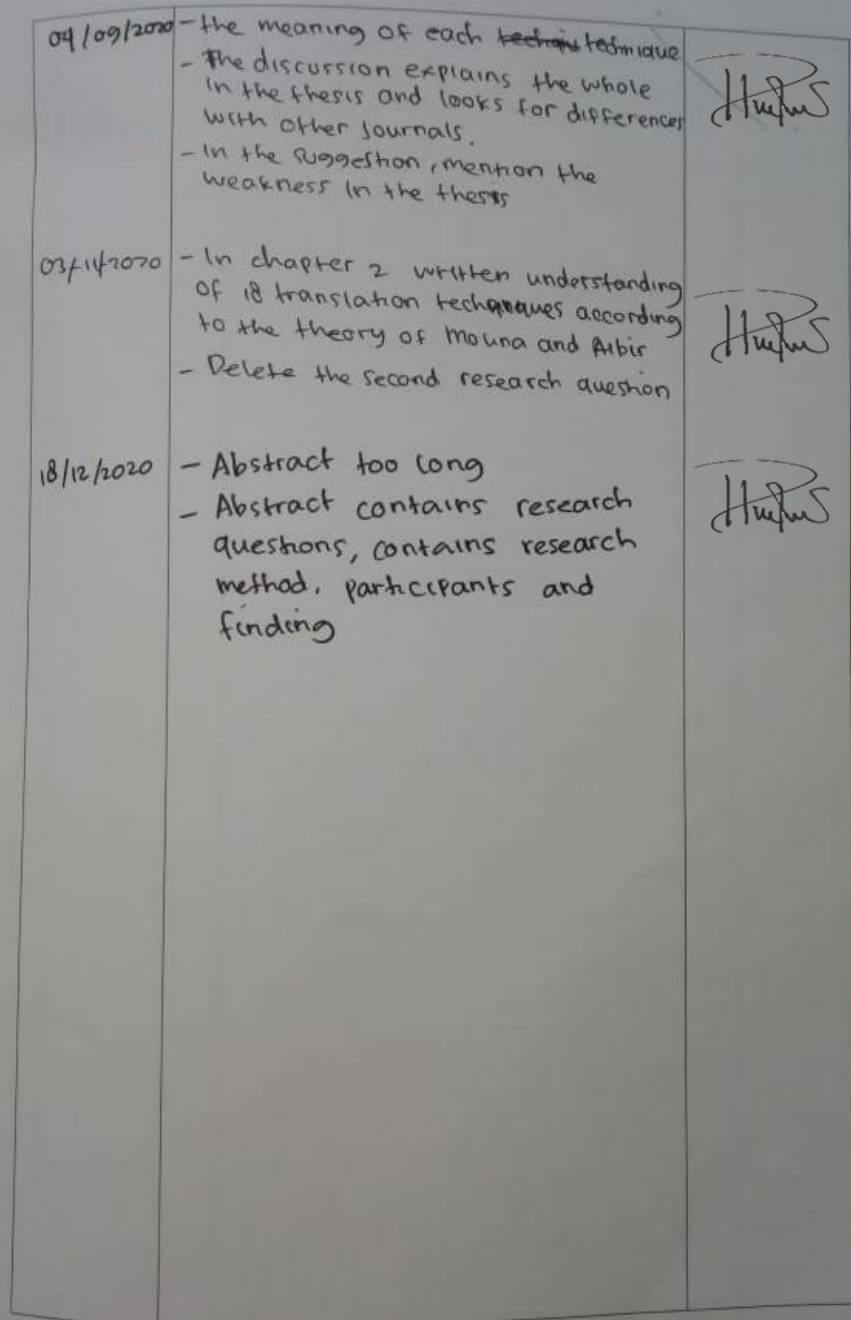 04/09/2020 - the meaning of each technique
- The discussion explains the whole
in the thesis and looks for differences
with other Journals.
- In the suggestion, mention the
weakness in the thesis
03/11/2020 - In chapter 2 written understanding
of 18 translation techniques according
to the theory of Mouna and Albir
- Delete the second research question
18/12/2020 - Abstract too long
- Abstract contains research
questions, contains research
method, participants and
finding